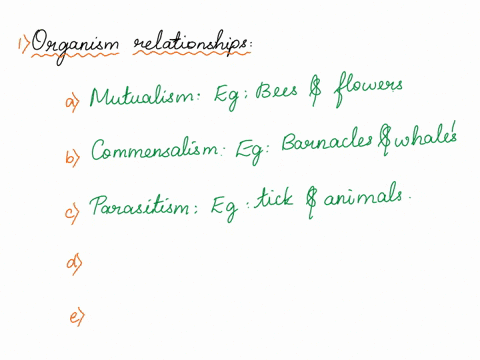 1) Organism relationships:
a) Mutualism: Eg: Bees & flowers
b) Commensalism: Eg: Barnacles & whale's
c) Parasitism: Eg: tick & animals.
d)
e)